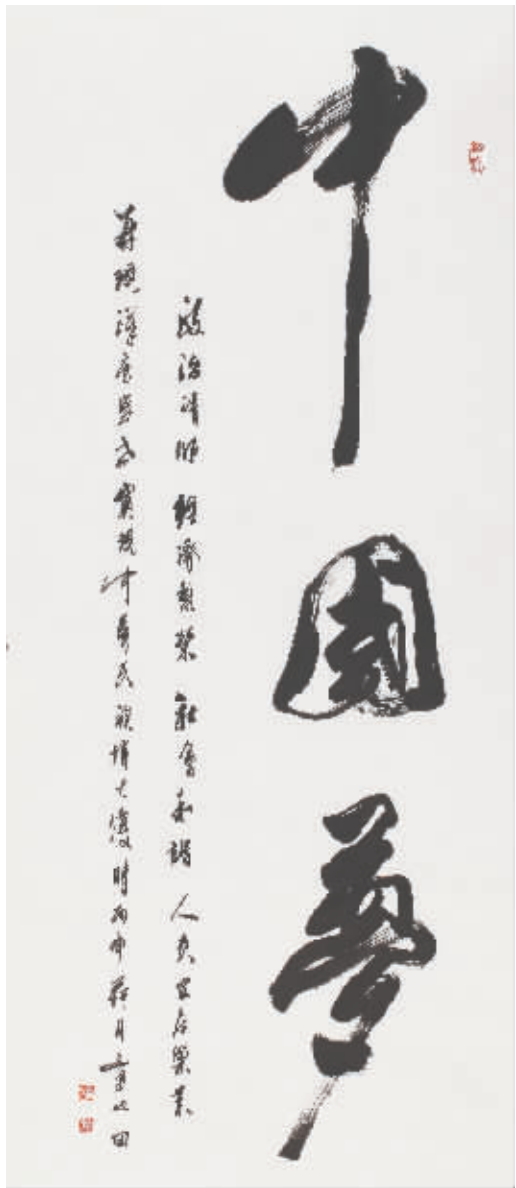 中國夢
政治清明 經濟繁榮 社會和諧 人民安居樂業
再現漢唐盛世 實現中華民族偉大復 時丙申 月